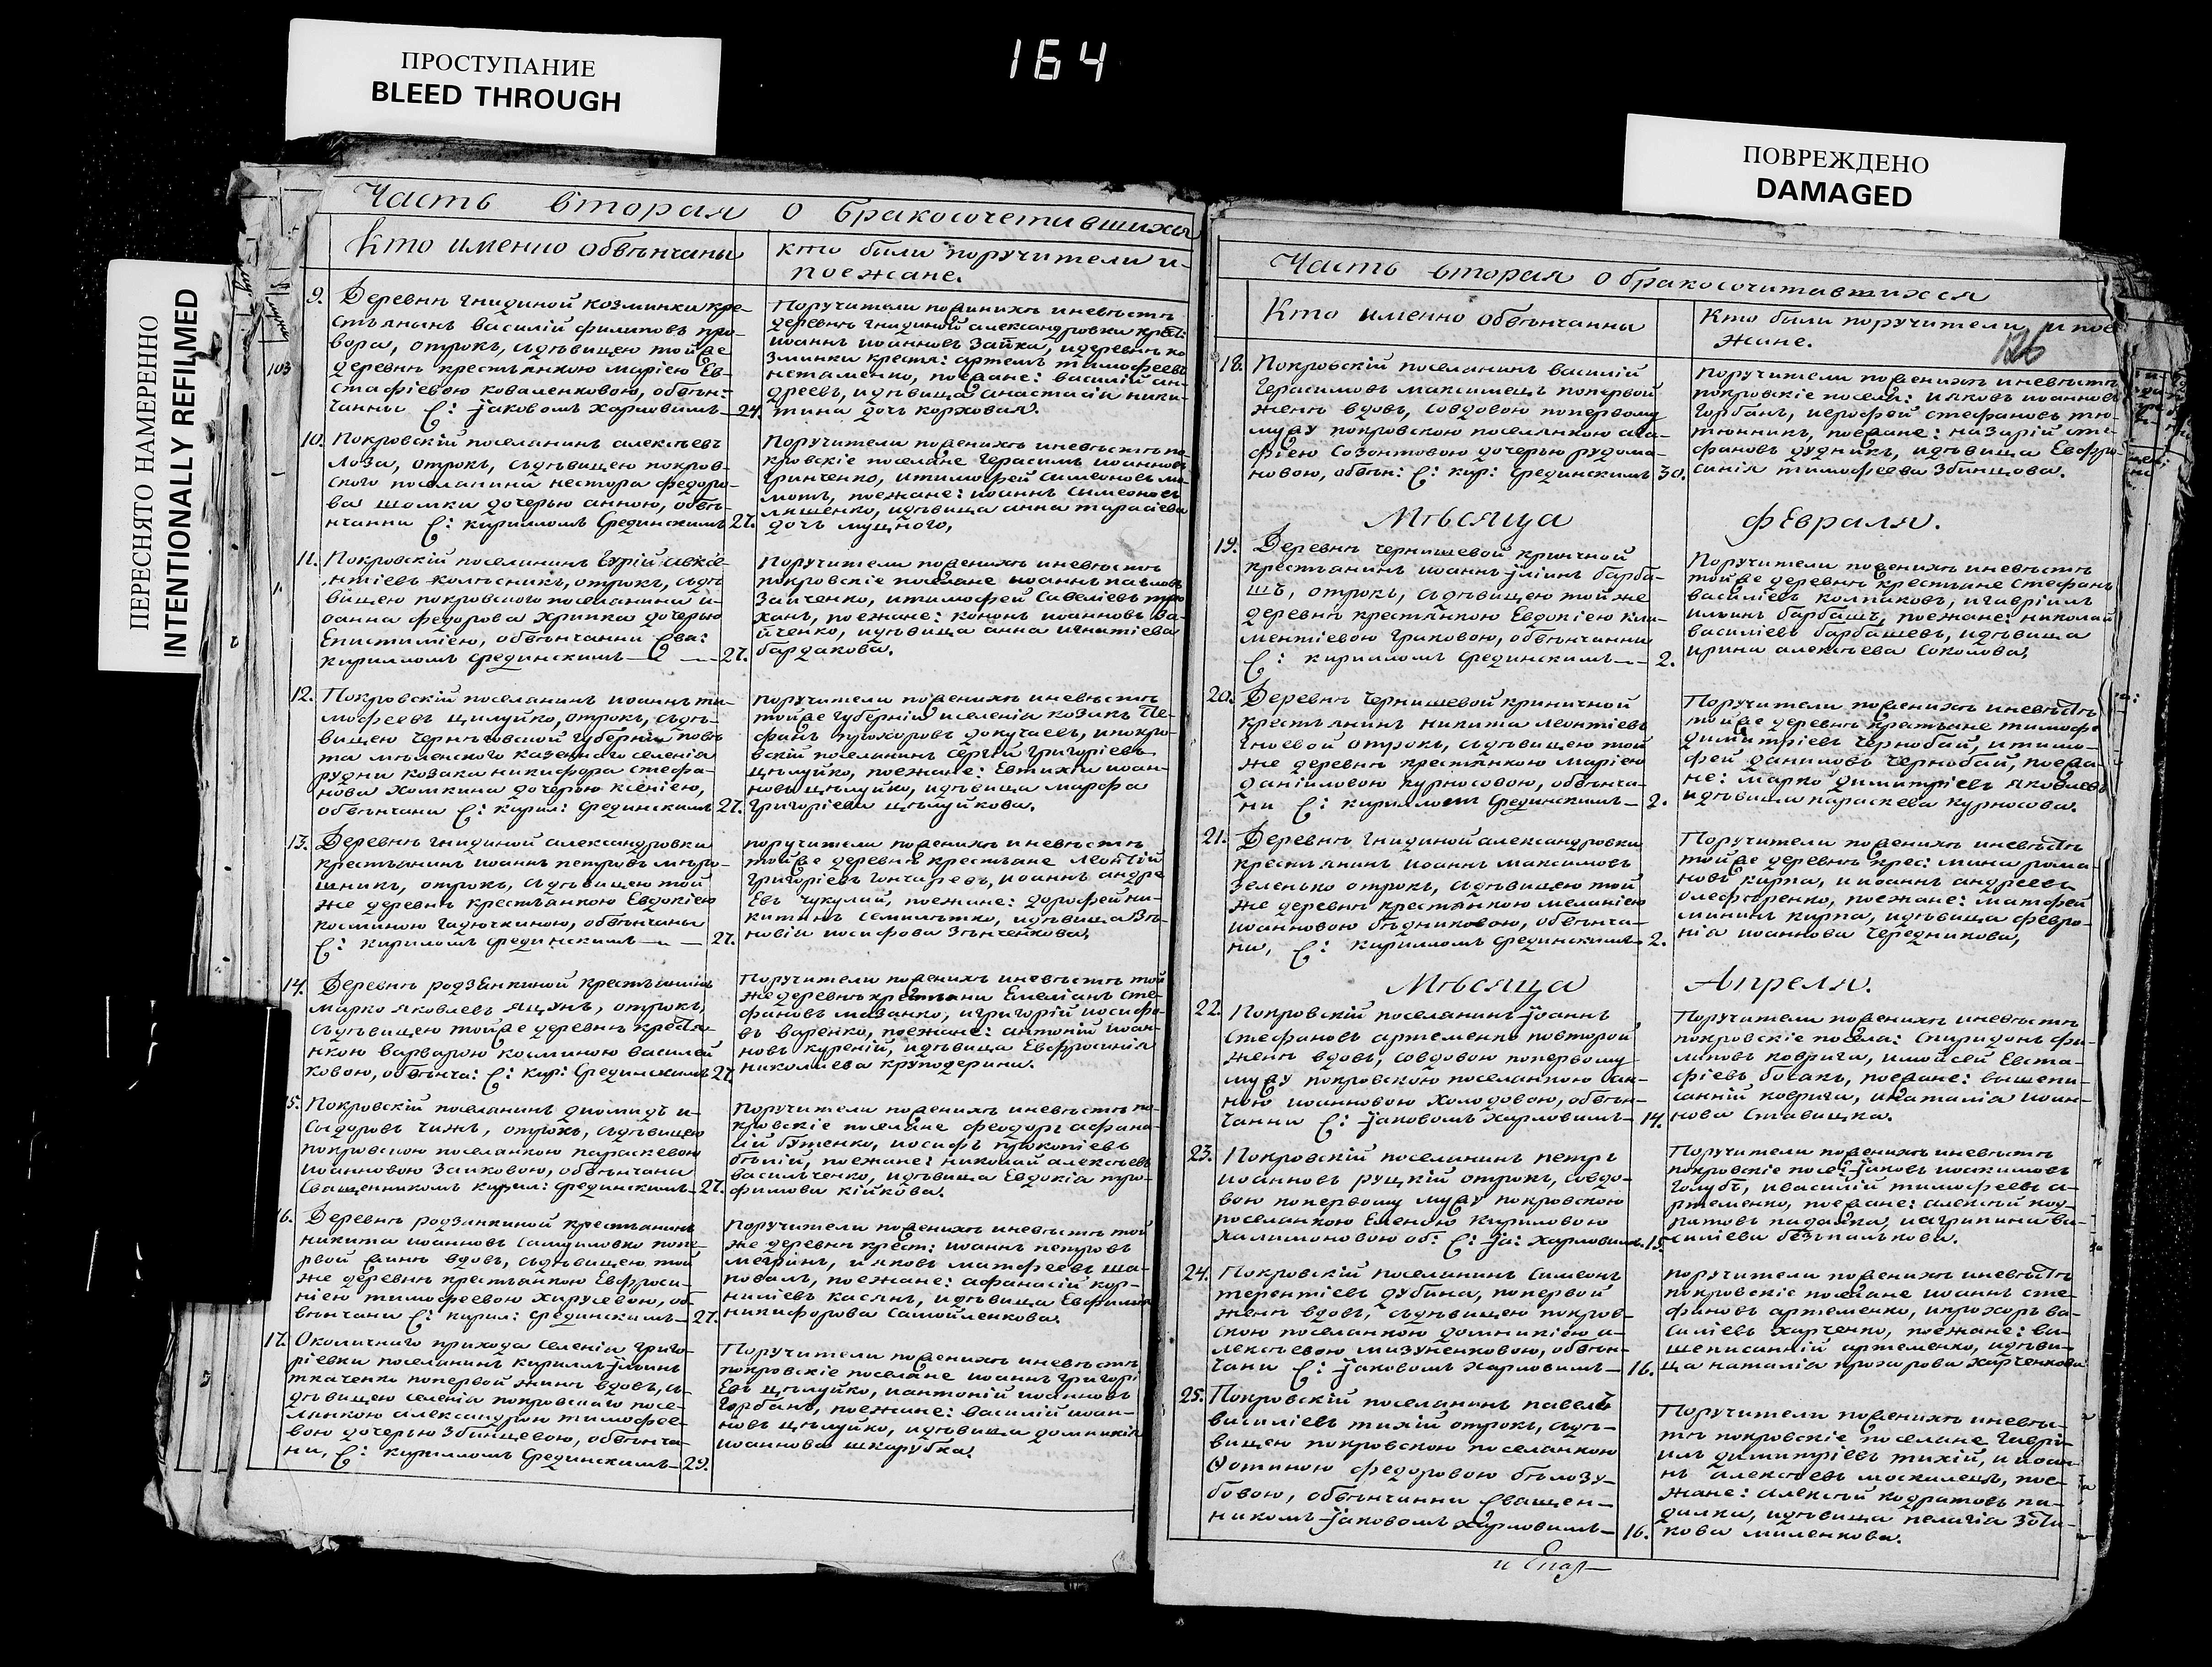 164
ПРОСТУПАНИЕ
BLEED THROUGH
ПОВРЕЖДЕНО
DAMAGED
ПЕРЕСНЯТО НАМЕРЕННО
INTENTIONALLY REFILMED
Часть вторая о бракосочетавшихся
Кто именно обвѣнчаны
кто были поручители и
поежане.
103
9. Деревнѣ гнидиной козминки кре-
стьянинъ василій филиповъ про-
вора, отрокъ, сдѣвицею тойже
деревнѣ крестьянкою маріею Ев-
стафіевою коваленковою, обвѣн-
чанны С: јаковомъ харловимъ 24.
Поручители поженихѣ иневѣстѣ
деревнѣ гнидиной александровки крес:
иоаннъ иоанновъ Зайка, идеревнѣ ко
зминки крестя: артемъ тимофеевъ
нестаменко, поежане: василій ан-
дреевъ, идѣвица анастасія ники-
тина дочъ коржовая.
10. Покровскій поселанинъ алексѣевъ
лоза, отрокъ, сдѣвицею покров-
ского поселанина нестора федоро-
ва шомки дочерью анною, обвѣ-
нчанни С: кирилломъ Срединскимъ 27.
Поручители поженихѣ иневѣстѣ по-
кровскіе поселане герасимъ иоанновъ
гринченко, итимофей симеоновъ ма-
мотъ, поежане: иоаннъ симеоновъ
ляшенко, идѣвица анна тарасіева
дочъ мущного,
11. Покровскій поселанинъ Гурій авксе-
нтіевъ колѣсникъ, отрокъ, сдѣ
вицею покровского поселанина и-
оанна федорова Хрипка дочерью
Епистиміею, обвѣнчанни Сва:
кирилломъ Срединскимъ 27.
Поручители поженихѣ иневѣстѣ
покровскіе поселане иоаннъ павловъ
Заиченко, итимофей Савеліевъ
ханъ, поежане: кононъ иоанновъ За-
йченко, идѣвица анна игнатіева
бардакова.
12. Покровскій поселанинъ иоаннъ ти-
мофеевъ цилуйко, отрокъ, сдѣ-
вицею Чернѣговской губерніи повѣ
та мглинского казенного селенія
рудни козака никифора стефа-
нова хомкина дочерою ксеніею,
обвѣнчани С: кирил: Срединскимъ 27.
поручители поженихѣ иневѣстѣ
тойже губерніи иселенія козакъ Сте-
фанъ прохоровъ докучаевъ, ипокро-
вскій поселанинъ сергій григоріевъ
цѣлуйко, поежане: Евтихій иоан-
новъ цѣлуйко, идѣвица марфа
григоріева цѣлуйкова.
13. Деревнѣ гнидиной александровки
крестьанинъ иоаннъ петровъ мѣро-
шникъ, отрокъ, сдѣвицею той
же деревнѣ крестьянкою Евдокіею
косминою гадючкиною, обвѣнчаны
С: кириломъ Срединскимъ 27.
поручители поженихѣ иневѣстѣ
тойже деревнѣ крестьане Леонтій
григоріевъ гончаревъ, иоаннъ андре
Евъ чукулий, поежане: дорофей ни-
китинъ Семилѣтко, идѣвица Зѣ-
новія иосифова Зѣнченкова,
14. Деревнѣ родзѣнкиной крестьянинъ
марко яковлевъ яцунъ, отрокъ,
сдѣвицею тойже деревнѣ крестья-
нкою варварою косминою василей
ковою, обвѣнча: С: кир: Срединскимъ 27.
Поручители поженихѣ иневѣстѣ той
же деревнѣ крестьяни Емеліанъ сте-
фановъ мазанко, игригорій иосифо-
въ варенко, поежане: антоній иоан-
новъ куреній, идѣвица Евфросинія
николаева круподерина.
15. Покровскій поселанинъ диомидъ и-
сидоровъ чижъ, отрокъ, сдѣвицею
покровскою поселанкою параскевою
иоанновою Заиковою, обвѣнчани
Священникомъ кирил: Срединскимъ 27.
Поручители поженихѣ иневѣстѣ по-
кровскіе поселане феодоръ афана-
сій бутенко, иосифъ прокопіевъ
бѣлій, поежане: николай алексѣевъ
василченко, идѣвица Евдокія тро-
фимова кійкова.
16. Деревнѣ родзянкиной крестьанинъ
никита иоанновъ Самуиловко попе-
рвой женѣ вдовъ, сдѣвицею той
же деревнѣ крестьянкою Евфроси-
ніею тимофеевою хирусевою, об-
вѣнчани С: кирил: Срединскимъ 27.
Поручители поженихѣ иневѣстѣ той
же деревнѣ крест: иоаннъ петровъ
мегринъ, іяковъ матфеевъ ша-
повалъ, поежане: афанасій кор-
ниліевъ касянъ, идѣвица Евфимія
никифорова Самойленкова.
17. Околичнаго прихода селенія григо-
ріевки поселанинъ кириллъ јлiинъ
ткаченко поперой жинѣ вдовъ, с-
дѣвицею селенія покровскаго посе-
лянкою александрою тимофее-
вою дочерью Збинцевою, обвѣнча-
ни, С: кирилломъ Срединскимъ 29.
Поручители поженихѣ иневѣстѣ
покровскіе поселане иоаннъ григорі
Евъ цѣлуйко, иантоній иоанновъ
Горбанъ, поежане: василій иоан-
новъ цѣлуйко, идѣвица домникія
иоаннова шкарубка.
Часть вторая о бракосочитавшихся
Кто именно обвѣнчанны
Кто были поручители, и пое
жане.
126
18. Покровскій поселанинъ василій
Герасимовъ максимецъ поперьвой
женѣ вдовъ, совдовою поперьвому
мужу покровскою поселянкою ага-
фіею Созонтовою дочерью рудома-
новою, обвѣн: С: кир: Срединскимъ 30.
Поручители поженихѣ иневѣстѣ
покровскіе посел: іяковъ иоанновъ
Горбанъ, иерофей стефановъ тю-
тюнникъ, поежане: назарій сте-
фановъ дудникъ, идѣвица Евфро-
синія тимофеева Збинцова.
Мѣсяца февраля.
19. Деревнѣ чернишевой кринчной
крестьянинъ иоаннъ јлiинъ барба-
шъ, отрокъ, сдѣвицею тойже
деревнѣ крестянкою Евдокіею кли-
ментіевою Граковою, обвѣнчанни
С: кирилломъ Срединскимъ 2.
Поручители поженихѣ иневѣстѣ
тойже деревнѣ крестьяне Стефанъ
василіевъ колпаковъ, игавріилъ
илиинъ барбашъ, поежане: николай
василіевъ барбашевъ, идѣвица
ирина алексѣева соколова,
20. Деревнѣ чернишевой криничной
крестьянинъ никита леонтіевъ
гноевой отрокъ, сдѣвицею той
же деревнѣ крестянкою маріею
даніиловою курносовою, обвѣнча-
ни С: кирилломъ Срединскимъ 2.
Поручители поженихѣ иневѣстѣ
тойже деревнѣ крестьяне тимофе
димитріевъ чернобай, итимо-
фей даниловъ чернобай, поежа-
не: марко димитріевъ яковлевъ
идѣвица параскева курносова.
21. Деревнѣ гнидиной александровки
крестьянинъ иоаннъ максимовъ
Зеленько отрокъ, сдѣвицею той
же деревнѣ крестянкою меланіею
иоанновою бѣдниковою, обвѣнча-
ни, С: кирилломъ Срединскимъ 2.
Поручители поженихѣ иневѣстѣ
тойже деревнѣ крес: мина рома-
новъ кирпа, ииоаннъ андреевъ
олефиренко, поежане: матфей
мининъ кирпа, идѣвица февро-
нія иоаннова чередникова,
Мѣсяца Апреля.
22. Покровскій поселанинъ јоаннъ
Стефановъ артеменко повторой
женѣ вдовъ, совдовою поперьвому
мужу покровскою поселанкою ан-
ною иоанновою холодовою, обвѣн-
чанни С: јаковомъ харловимъ 14.
Поручители поженихѣ иневѣстѣ
покровскіе посела: Спиридонъ фи-
липовъ коврига, имойсей Евста-
фіевъ босакъ, поежане: вышепи-
санній коврига, инаталія иоан-
нова Ставицка.
23. Покровскій поселанинъ петръ
иоанновъ руцкій отрокъ, совдо-
вою поперьвому мужу покровскою
поселанкою Еленою Кириловою
халимоновою об: С: ја: харловимъ. 15.
Поручители поженихѣ иневѣстѣ
покровскіе посел: јаковъ иоакимовъ
голубъ, ивасилій тимофеевъ а-
ртеменко, поежане: алексѣй код-
ратовъ падалка, иагрипина ва-
силіева безпалькова.
24. Покровскій поселанинъ Симеонъ
терентіевъ дубина, поперьвой
женѣ вдовъ, сдѣвицею покров-
скою поселанкою домникіею а-
лексѣевою мизуненковою, обвѣн-
чани С: јаковомъ харловимъ 16.
поручители поженихѣ иневѣстѣ
покровскіе поселане иоаннъ сте-
фановъ артеменко, ипрохоръ ва-
силіевъ харченко, поежане: ви-
шеписанній артеменко, идѣви-
ца наталія прохорова харченкова
25. Покровскій поселанинъ павелъ
василіевъ тихій отрокъ, сдѣ-
вицею покровскою поселанкою
Фотиною федоровою бѣлозу-
бовою, обвѣнчанни Священ-
никомъ јаковомъ харловимъ 16.
Поручители поженихѣ иневѣс-
тѣ покровскіе поселане гаврі-
илъ димитріевъ тихій, и иоан-
нъ алексѣевъ москалецъ, пое-
жане: алексѣй кодратовъ па-
далка, идѣвица пелагія
кова миленкова.